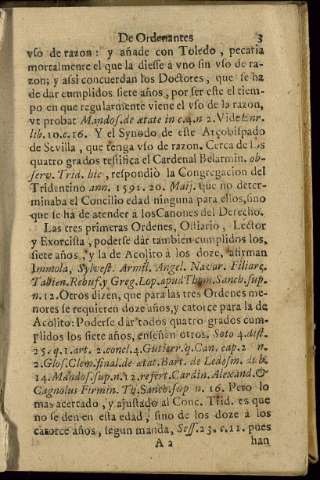 De Ordenantes 3
vso de razon: y añade con Toledo, pecaria
mortalmente el que la diesse à vno sin vso de ra-
zon; y assi concuerdan los Doctores, que se ha
de dar cumplidos siete años, por ser este el tiem-
po en que regularmente viene el vso de la razon,
vt probat Mandos. de ætate in c.4. n 2. Vide Enr.
lib. 10. c. 16. Y el Synodo de este Arçobispado
de Sevilla, que tenga vso de razon. Cerca de los
quatro grados testifica el Cardenal Belarmin. ob-
serv. Trid. hic, respondiò la Congregacion del
Tridentino ann. 1591. 20. Maij. que no deter-
minaba el Concilio edad ninguna para ellos, sino
que se há de atender à los Canones del Derecho.
Las tres primeras Ordenes, Ostiario, Lector
y Exorcista, poderse dár tambien cumplidos los
siete años, y la de Acolito à los doze, afirman
Immola, Sylvest. Armil. Angel. Navar. Filiarc.
Tabien. Rebuf. y Greg. Lop. apud Thom. Sanch. sup.
n. 12. Otros dizen, que para las tres Ordenes me-
nores se requieren doze años, y catorce para la de
Acolito: Poderse dàr todos quatro grados cum-
plidos los siete años, enseñen otros. Soto 4. dist.
25. q. 1. art. 2. concl. 4. Gutierr. q. Can. cap. 2 n
2. Glos. Clem. final. de ætat. Bart. de Ledesm. d b.
14. Mandos. sup. n. 12. refert Cardin. Alexand. &
Cagnolus Firmin. Tŷ. Sanch. sup n. 16. Pero lo
mas acertado, y ajustado al Conc. Trid. es que
no se den en esta edad, sino de los doze à los
catorce años, segun manda, Sess. 23. c. 11. pues
A 2 han